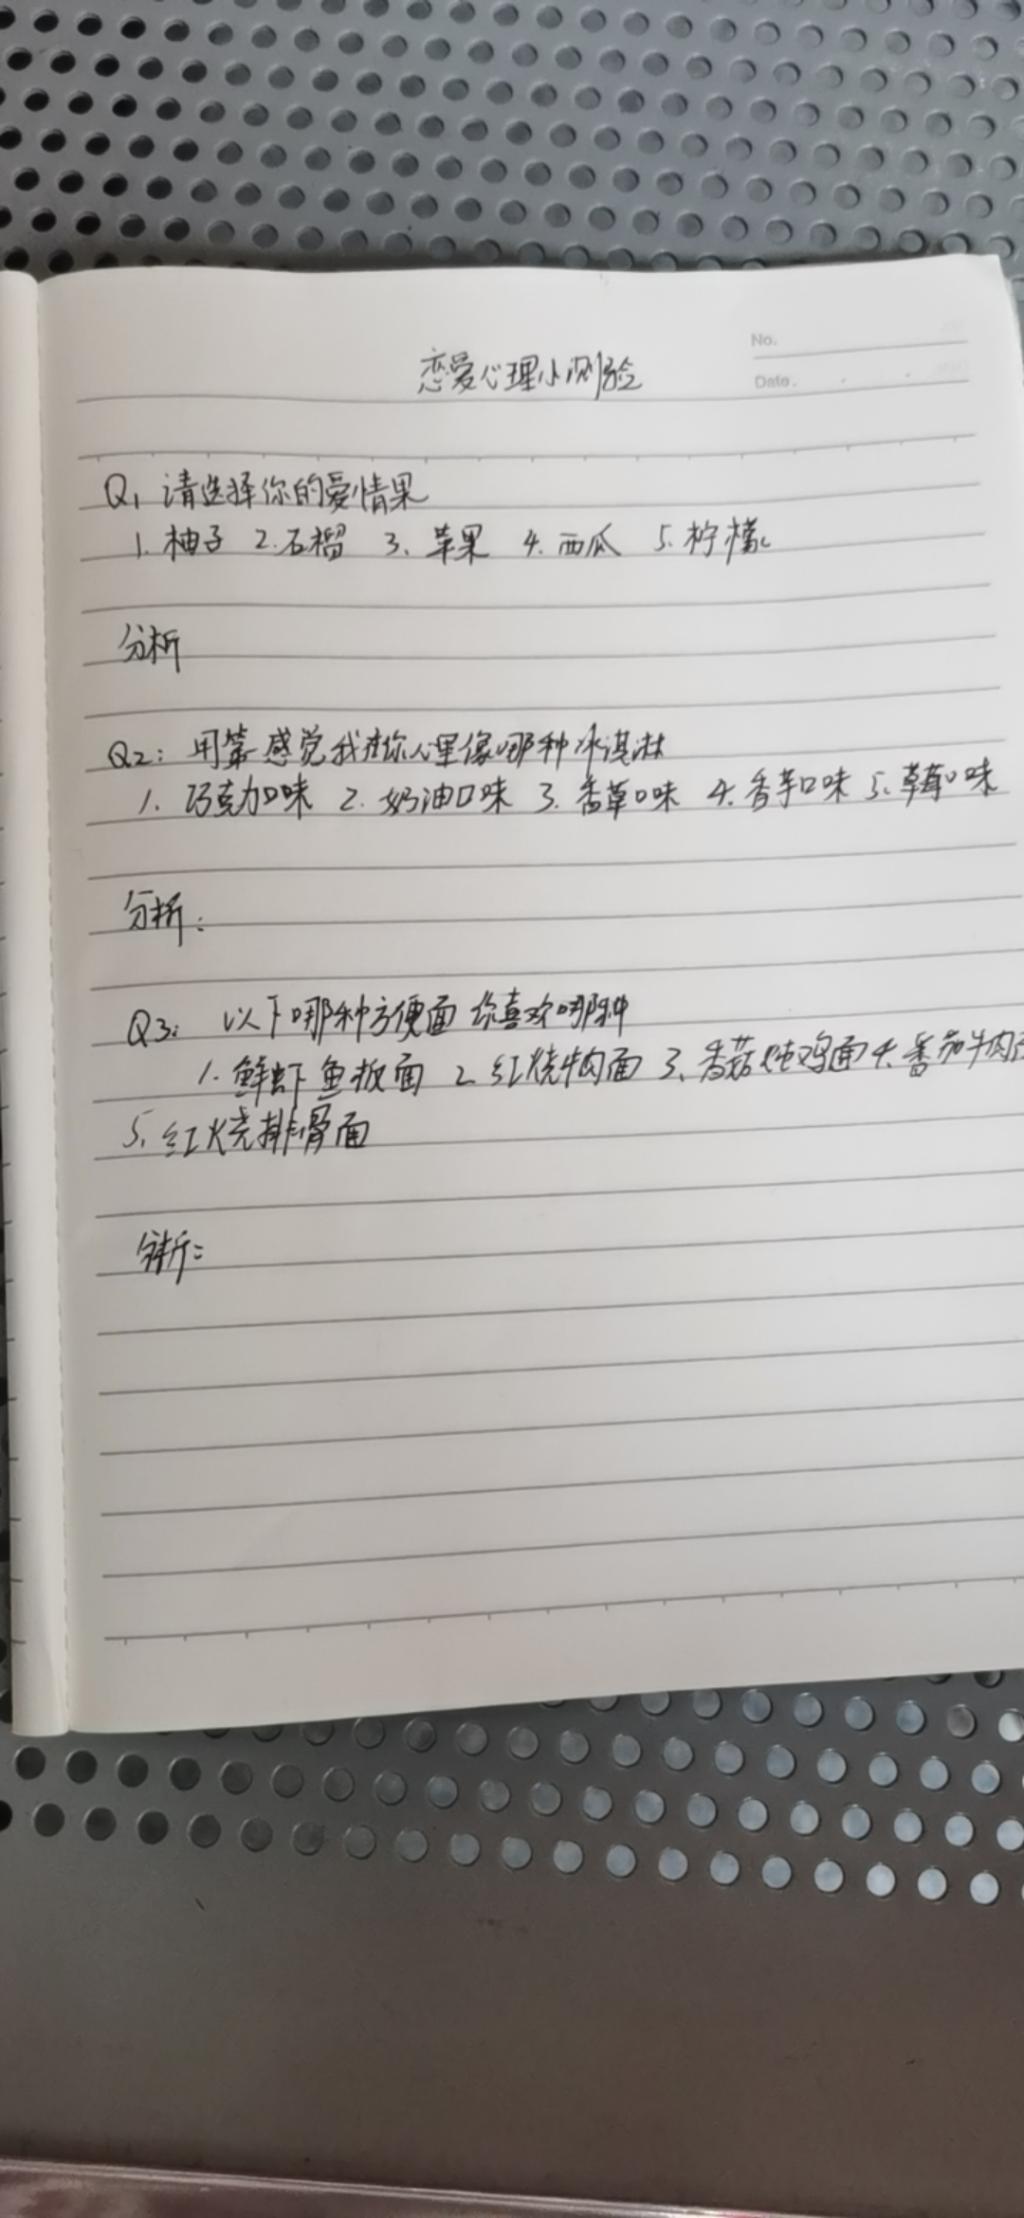 No.
恋爱心理小测验
Date.
Q1 请选择你的爱情果
1. 柚子 2. 石榴 3. 苹果 4. 西瓜 5. 柠檬
分析
Q2: 用第感觉我在你心里像哪种冰淇淋
1. 巧克力口味 2. 奶油口味 3. 香草口味 4. 香芋口味 5. 草莓口味
分析:
Q3: 以下哪种方便面你喜欢哪种
1. 鲜虾鱼板面 2. 红烧牛肉面 3. 香菇炖鸡面 4. 番茄牛肉
5. 红烧排骨面
分析: